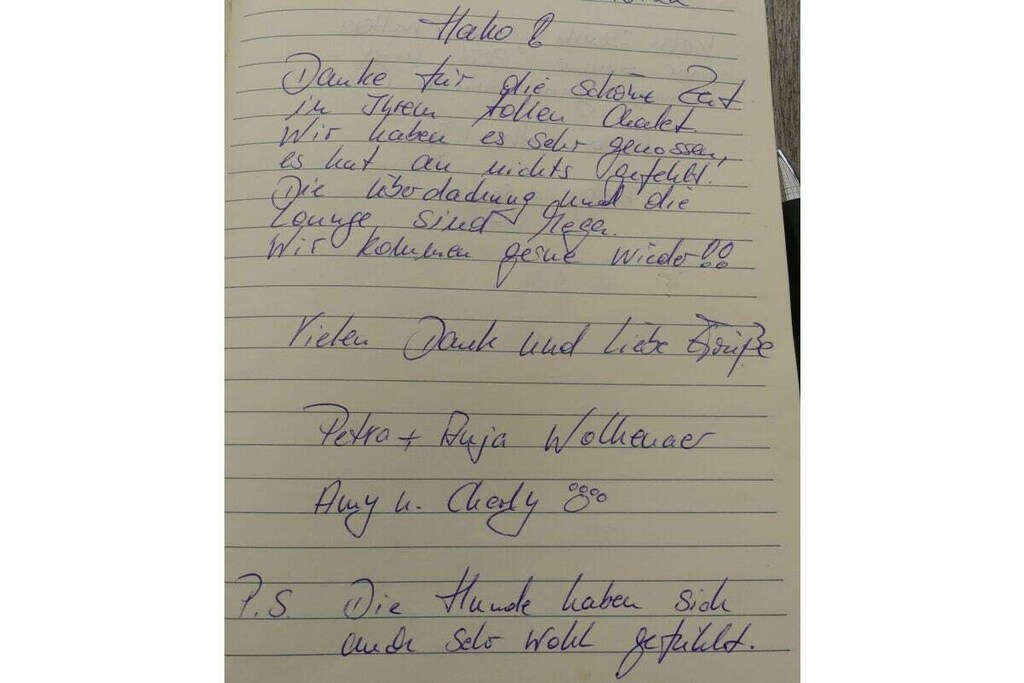 Hallo!
Danke für die schöne Zeit
in Ihrem tollen Chalet.
Wir haben es sehr genossen,
es hat an nichts gefehlt!
Die Überdachung und die
Lounge sind mega.
Wir kommen gerne wieder!!
Vielen Dank und liebe Grüße
Petra + Anja Wolkenaer
Amy u. Charly
P.S. Die Hunde haben sich
auch sehr wohl gefühlt.